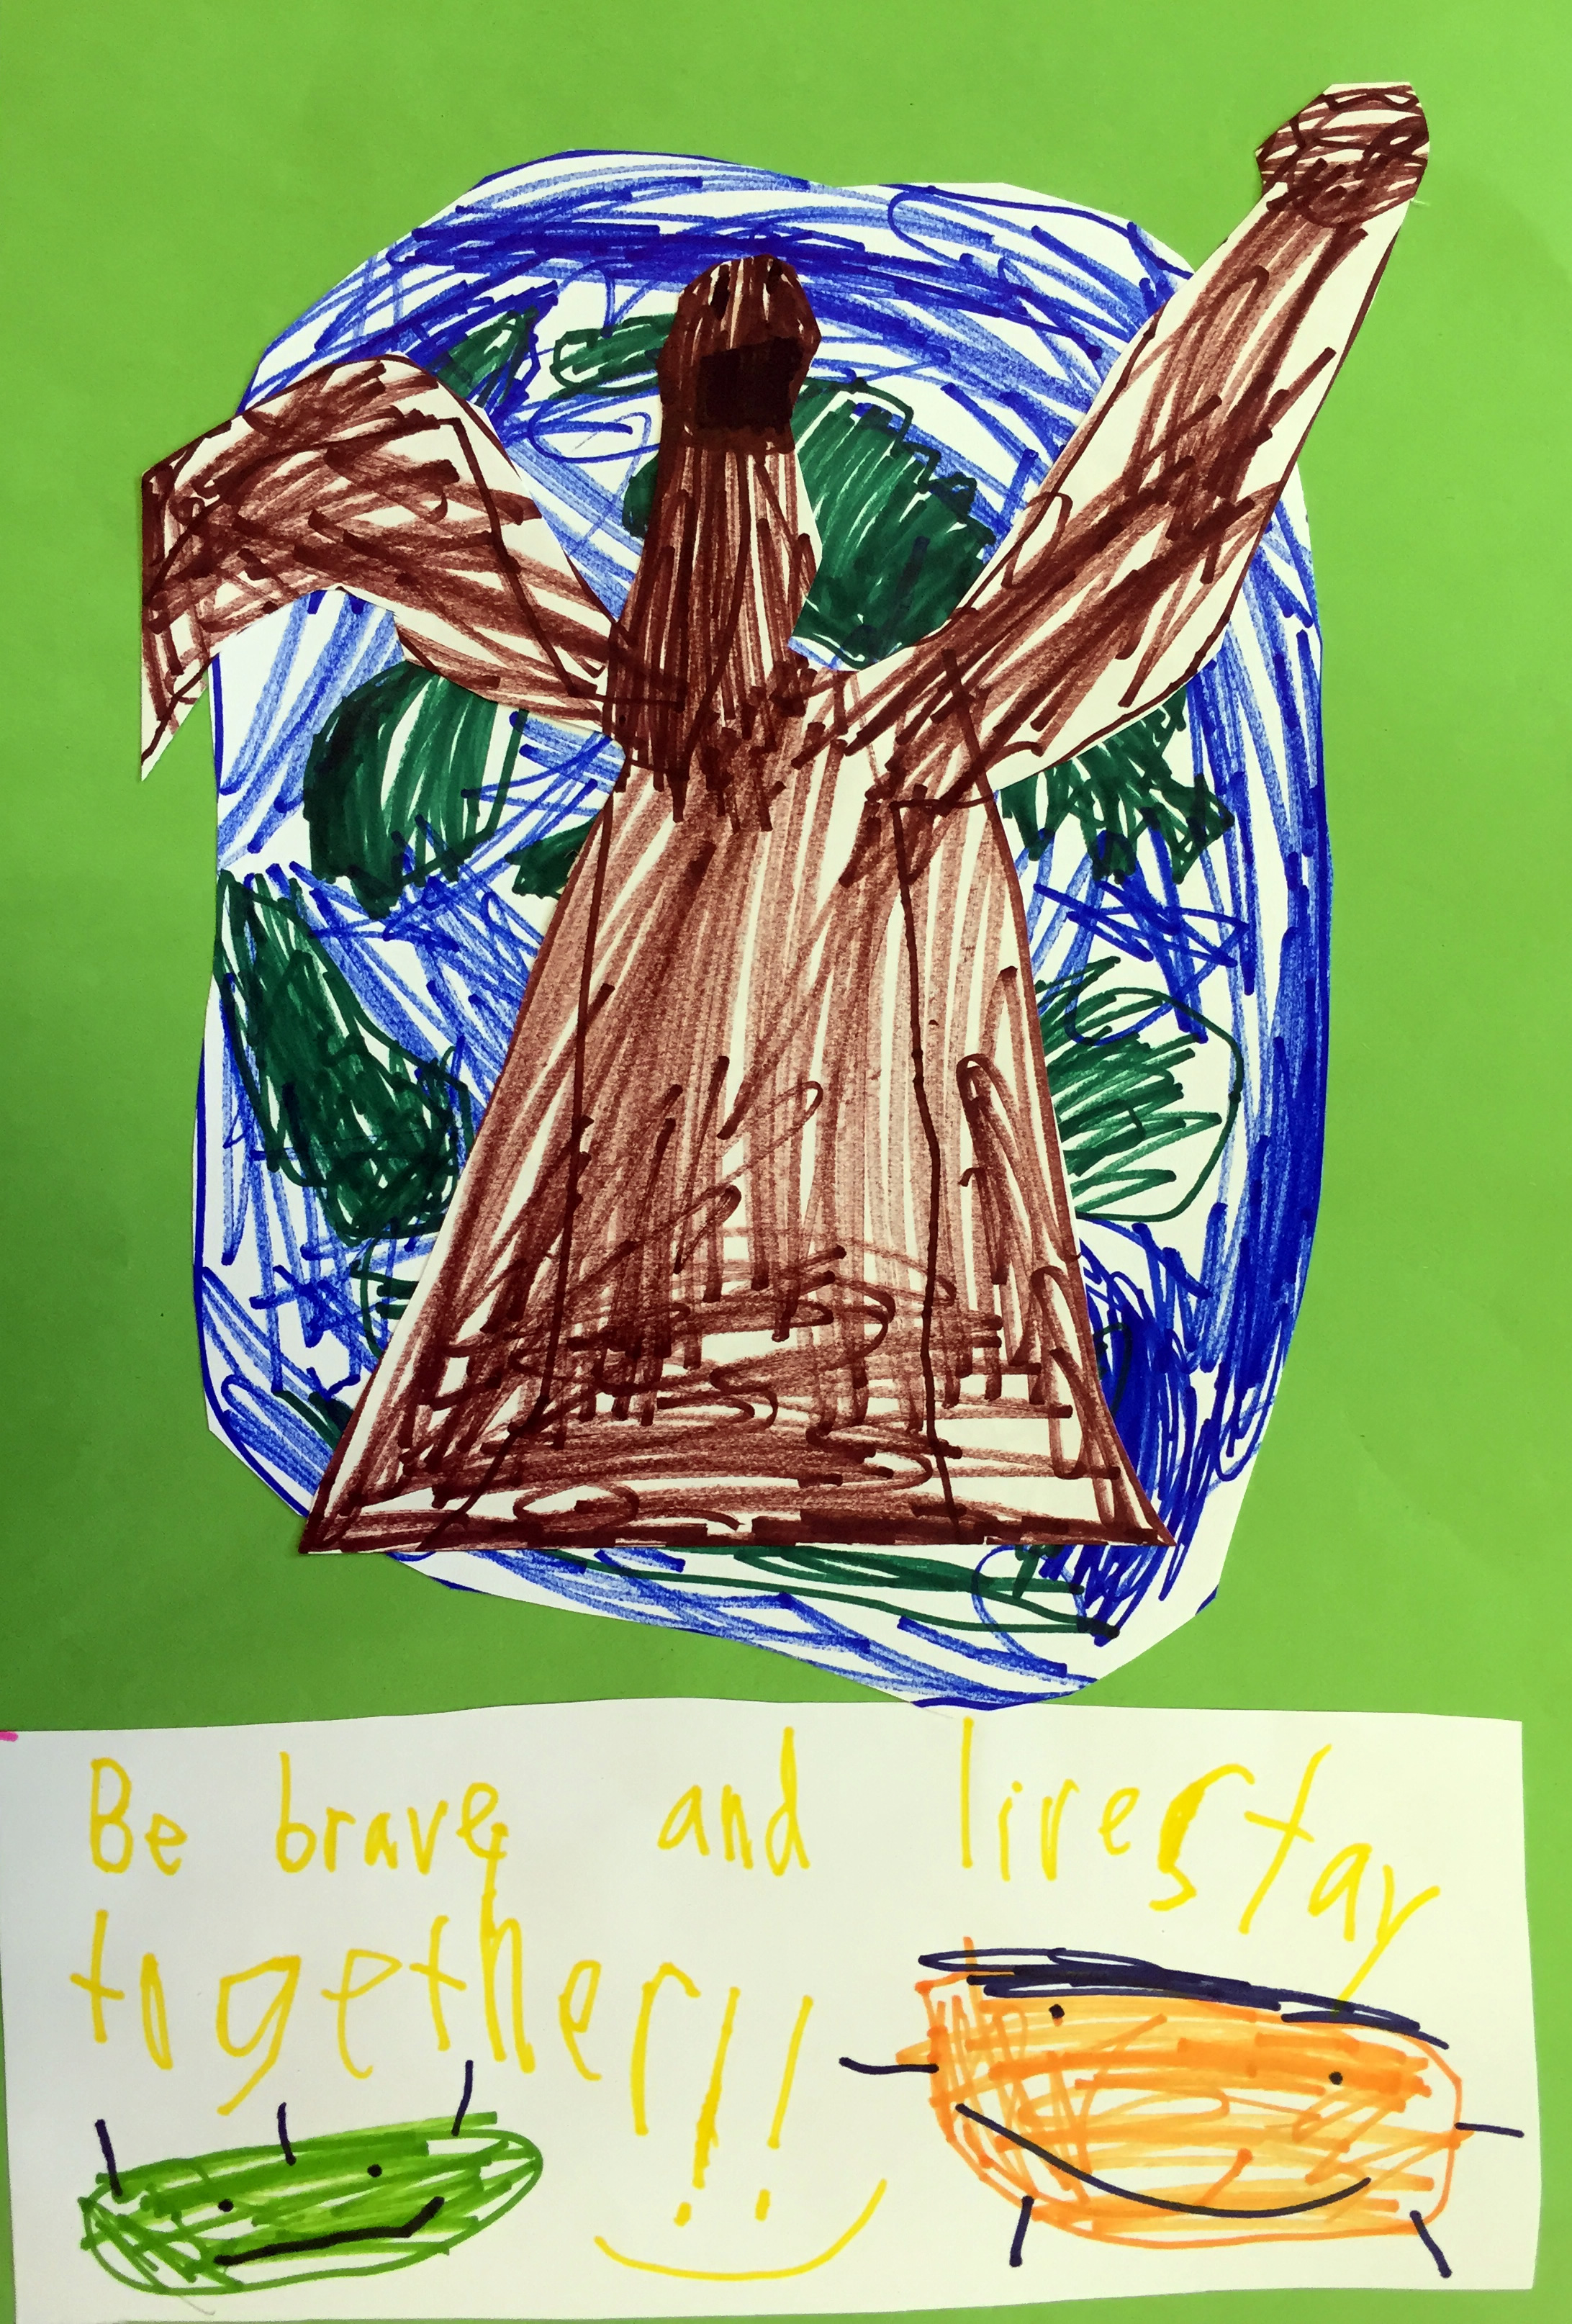 Be brave and live stay
together!!